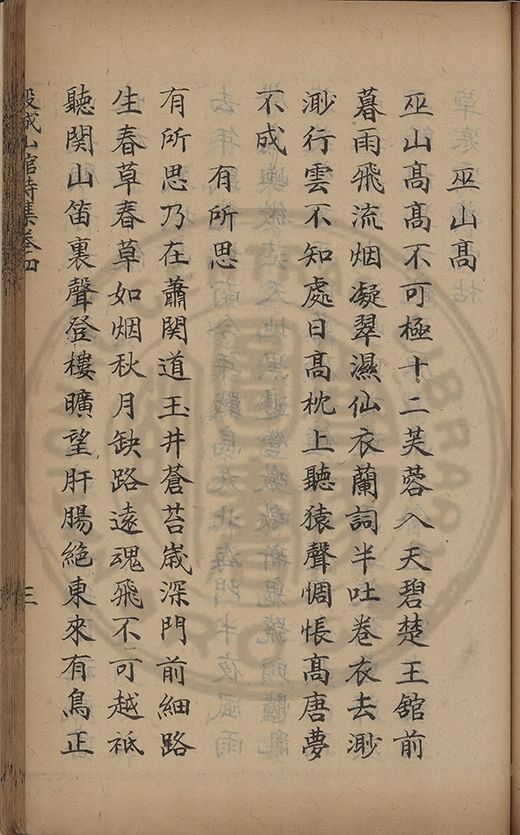 巫山髙
巫山髙髙不可極十二芙蓉入天碧楚王舘前
暮雨飛流烟凝翠濕仙衣蘭詞半吐卷衣去渺
渺行雲不知處日髙枕上聽猿聲惆悵髙唐夢
不成
有所思
有所思乃在蕭関道玉井蒼苔歲深門前細路
生春草春草如烟秋月缺路遠魂飛不可越祗
聽関山笛裏聲登樓曠望肝腸絶東來有鳥正
山館詩集卷四
三